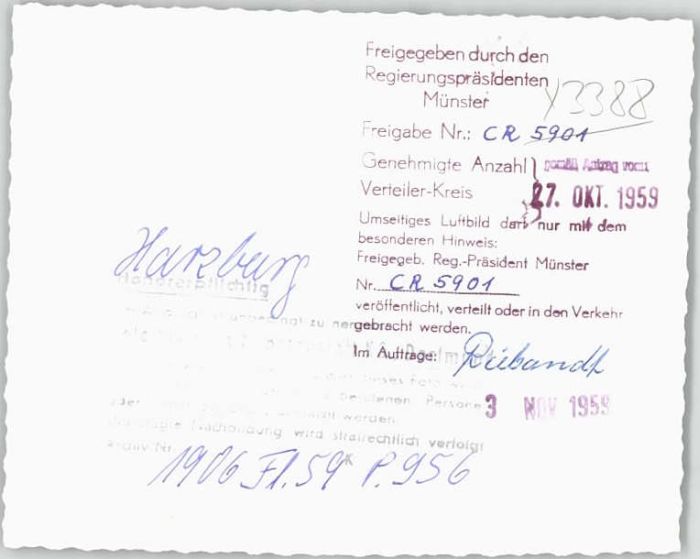 Freigegeben durch den
Regierungspräsidenten
Münster
Y3388
Freigabe Nr.: CR 5901
Genehmigte Anzahl } gemäß Antrag vom:
Verteiler-Kreis } 27. OKT. 1959
Umseitiges Luftbild darf nur mit dem
besonderen Hinweis:
Freigegeb. Reg.-Präsident Münster
Nr. CR 5901
veröffentlicht, verteilt oder in den Verkehr
gebracht werden.
Im Auftrage:
3 NOV 1959
Harzburg
Honorarpflichtig
zu
Foto
Personen
werden
wird strafrechtlich verfolgt
Archiv-Nr.
1906 Fl. 59 P. 956